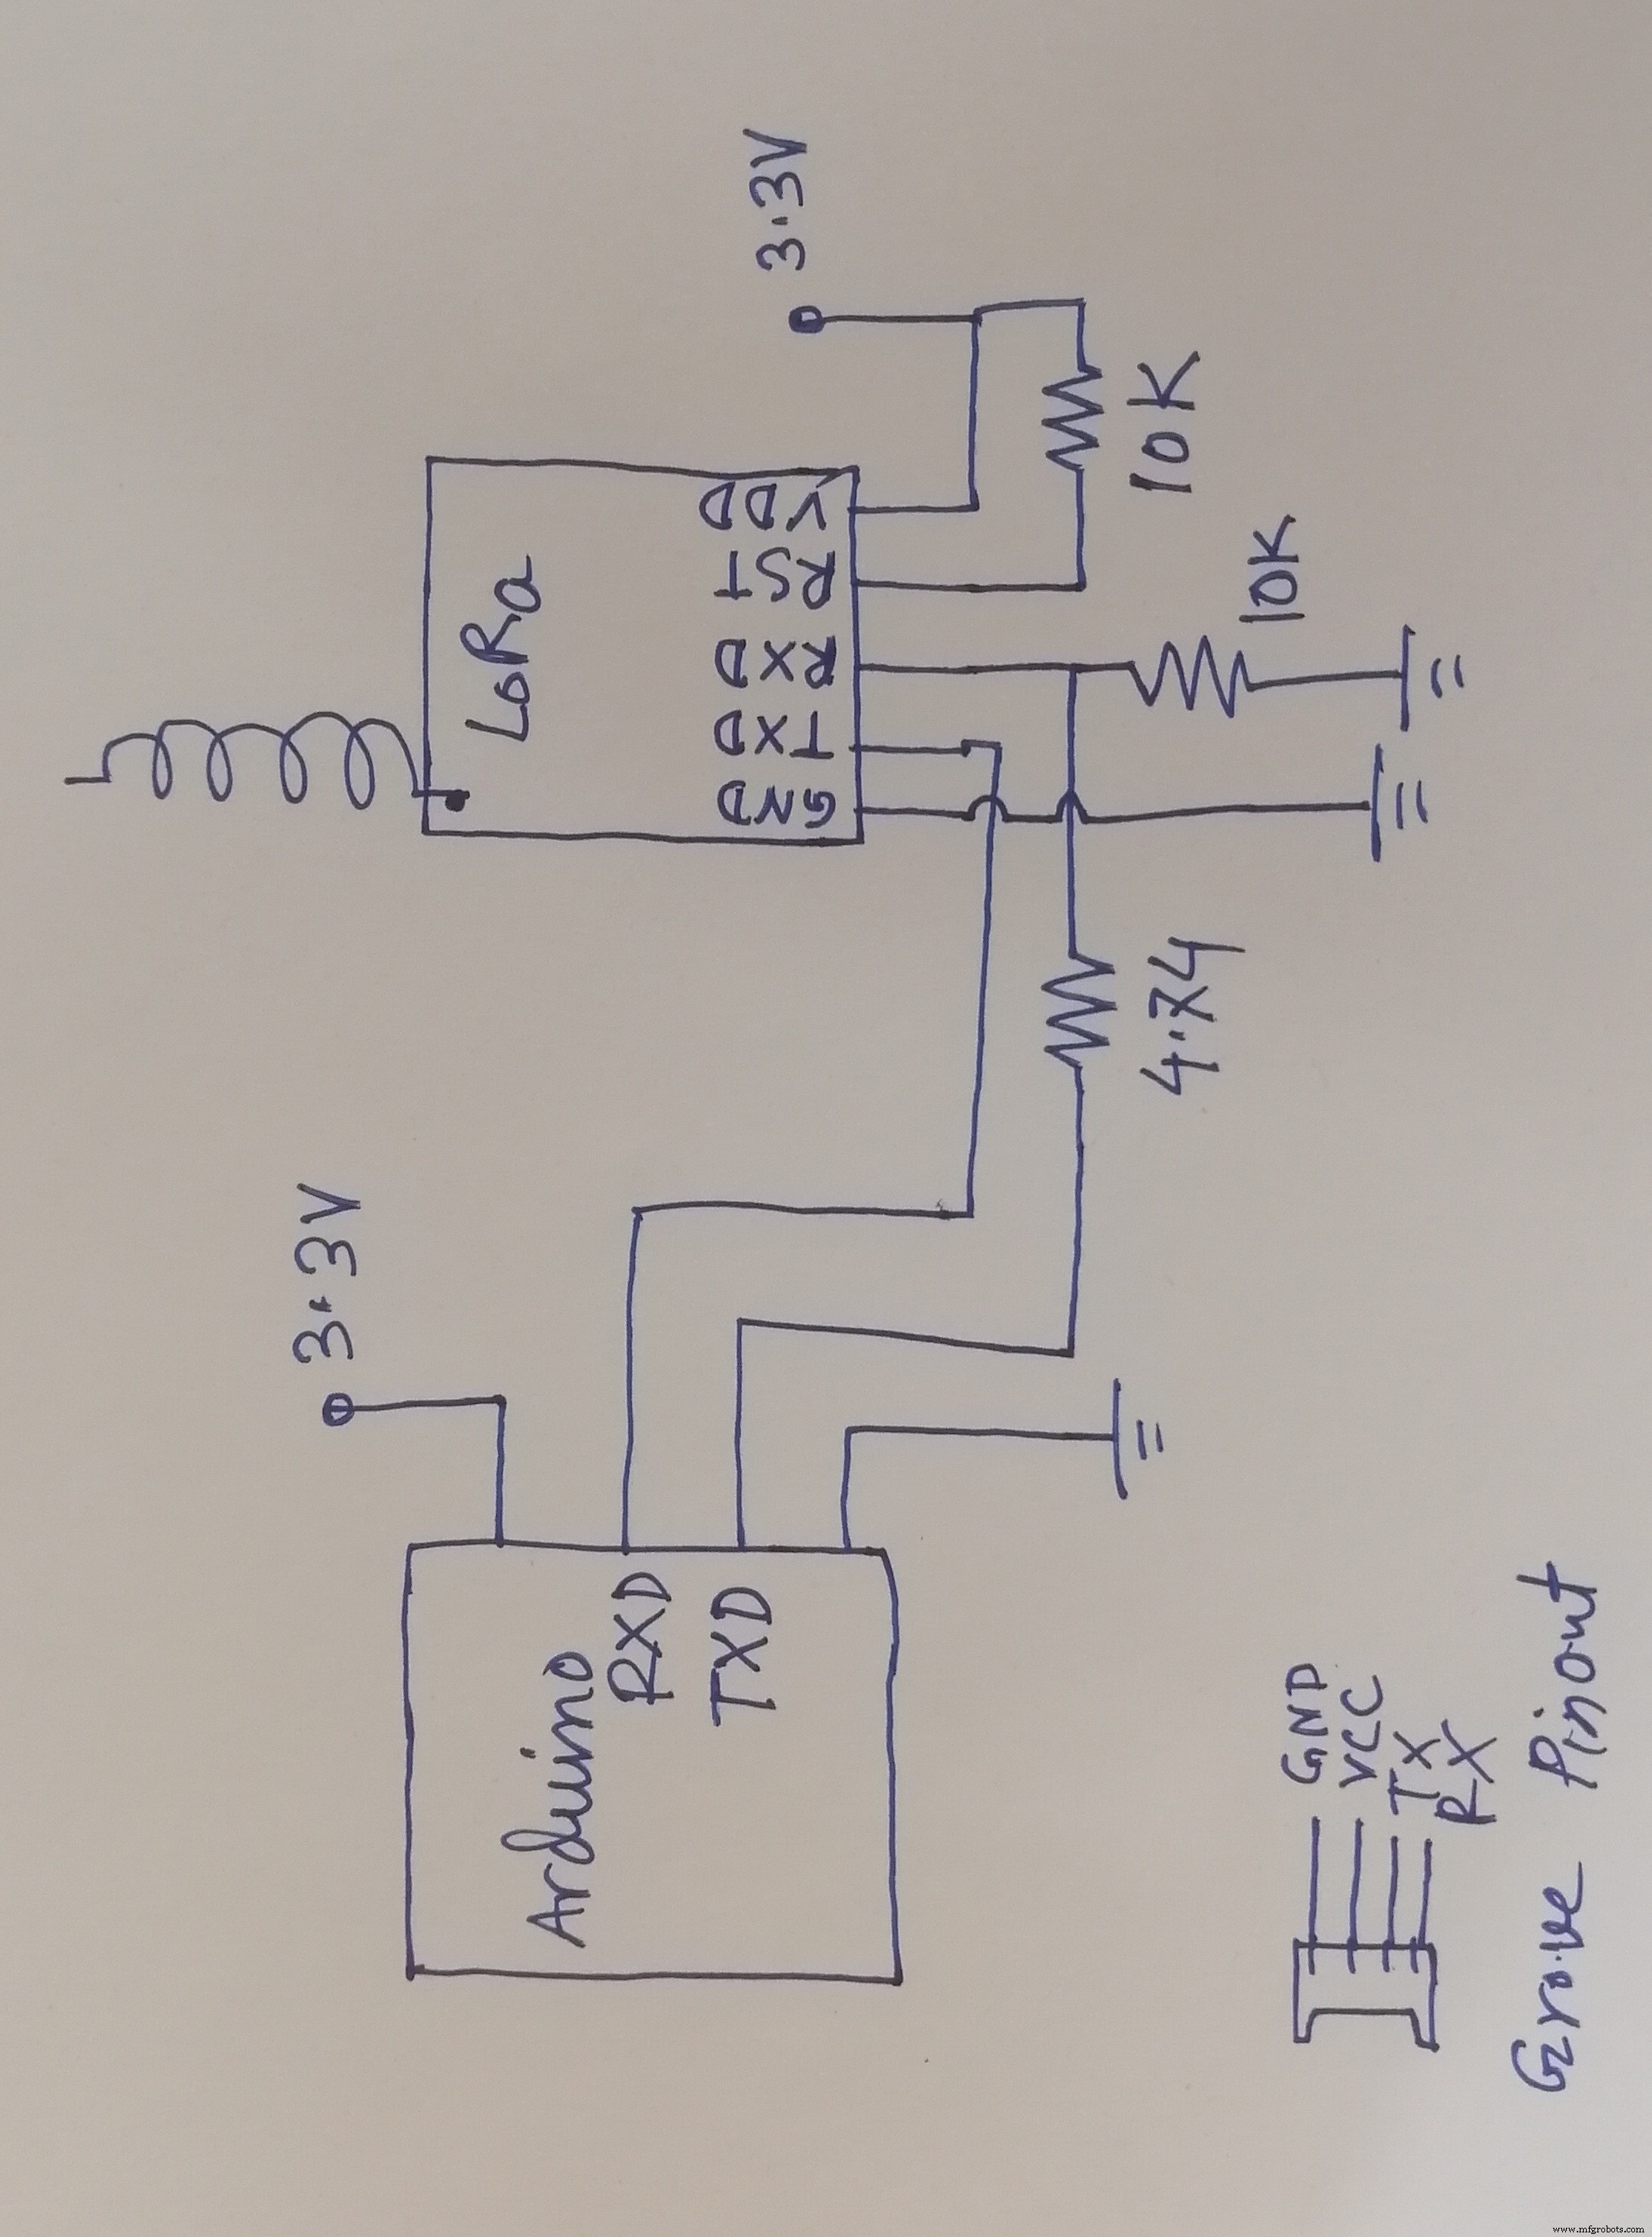 3.3V
LoRa
VDD
RST
RXD
TXD
GND
10K
10K
4.74
3.3V
Arduino
RXD
TXD
GND
VCC
TX
RX
Grove Pinout
www.mfgrobots.com